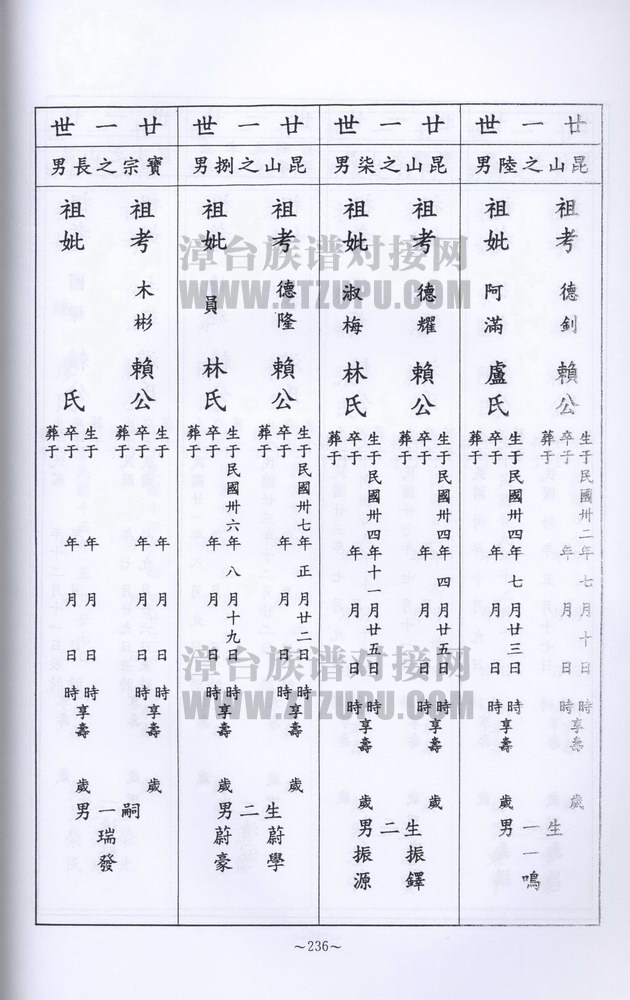 廿一世
昆山之陸男
祖考 德釗 賴公
生于民國卅二年七月十日時享壽歲
卒于年月日時
葬于
祖妣 阿滿 盧氏
生于民國卅四年七月廿三日時享壽歲
卒于年月日時
葬于
生一男
一鳴
廿一世
昆山之柒男
祖考 德耀 賴公
生于民國卅四年四月廿五日時享壽歲
卒于年月日時
葬于
祖妣 淑梅 林氏
生于民國卅四年十一月廿五日時享壽歲
卒于年月日時
葬于
生二男
振鐸
振源
廿一世
昆山之捌男
祖考 德隆 賴公
生于民國卅七年正月廿二日時享壽歲
卒于年月日時
葬于
祖妣 員 林氏
生于民國卅六年八月十九日時享壽歲
卒于年月日時
葬于
生二男
蔚學
蔚豪
廿一世
寶宗之長男
祖考 木彬 賴公
生于年月日時享壽歲
卒于年月日時
葬于
祖妣 氏
生于年月日時享壽歲
卒于年月日時
葬于
嗣一男
瑞發
~236~
漳台族谱对接网
WWW.ZTZUPU.COM
漳台族谱对接网
WWW.ZTZUPU.COM